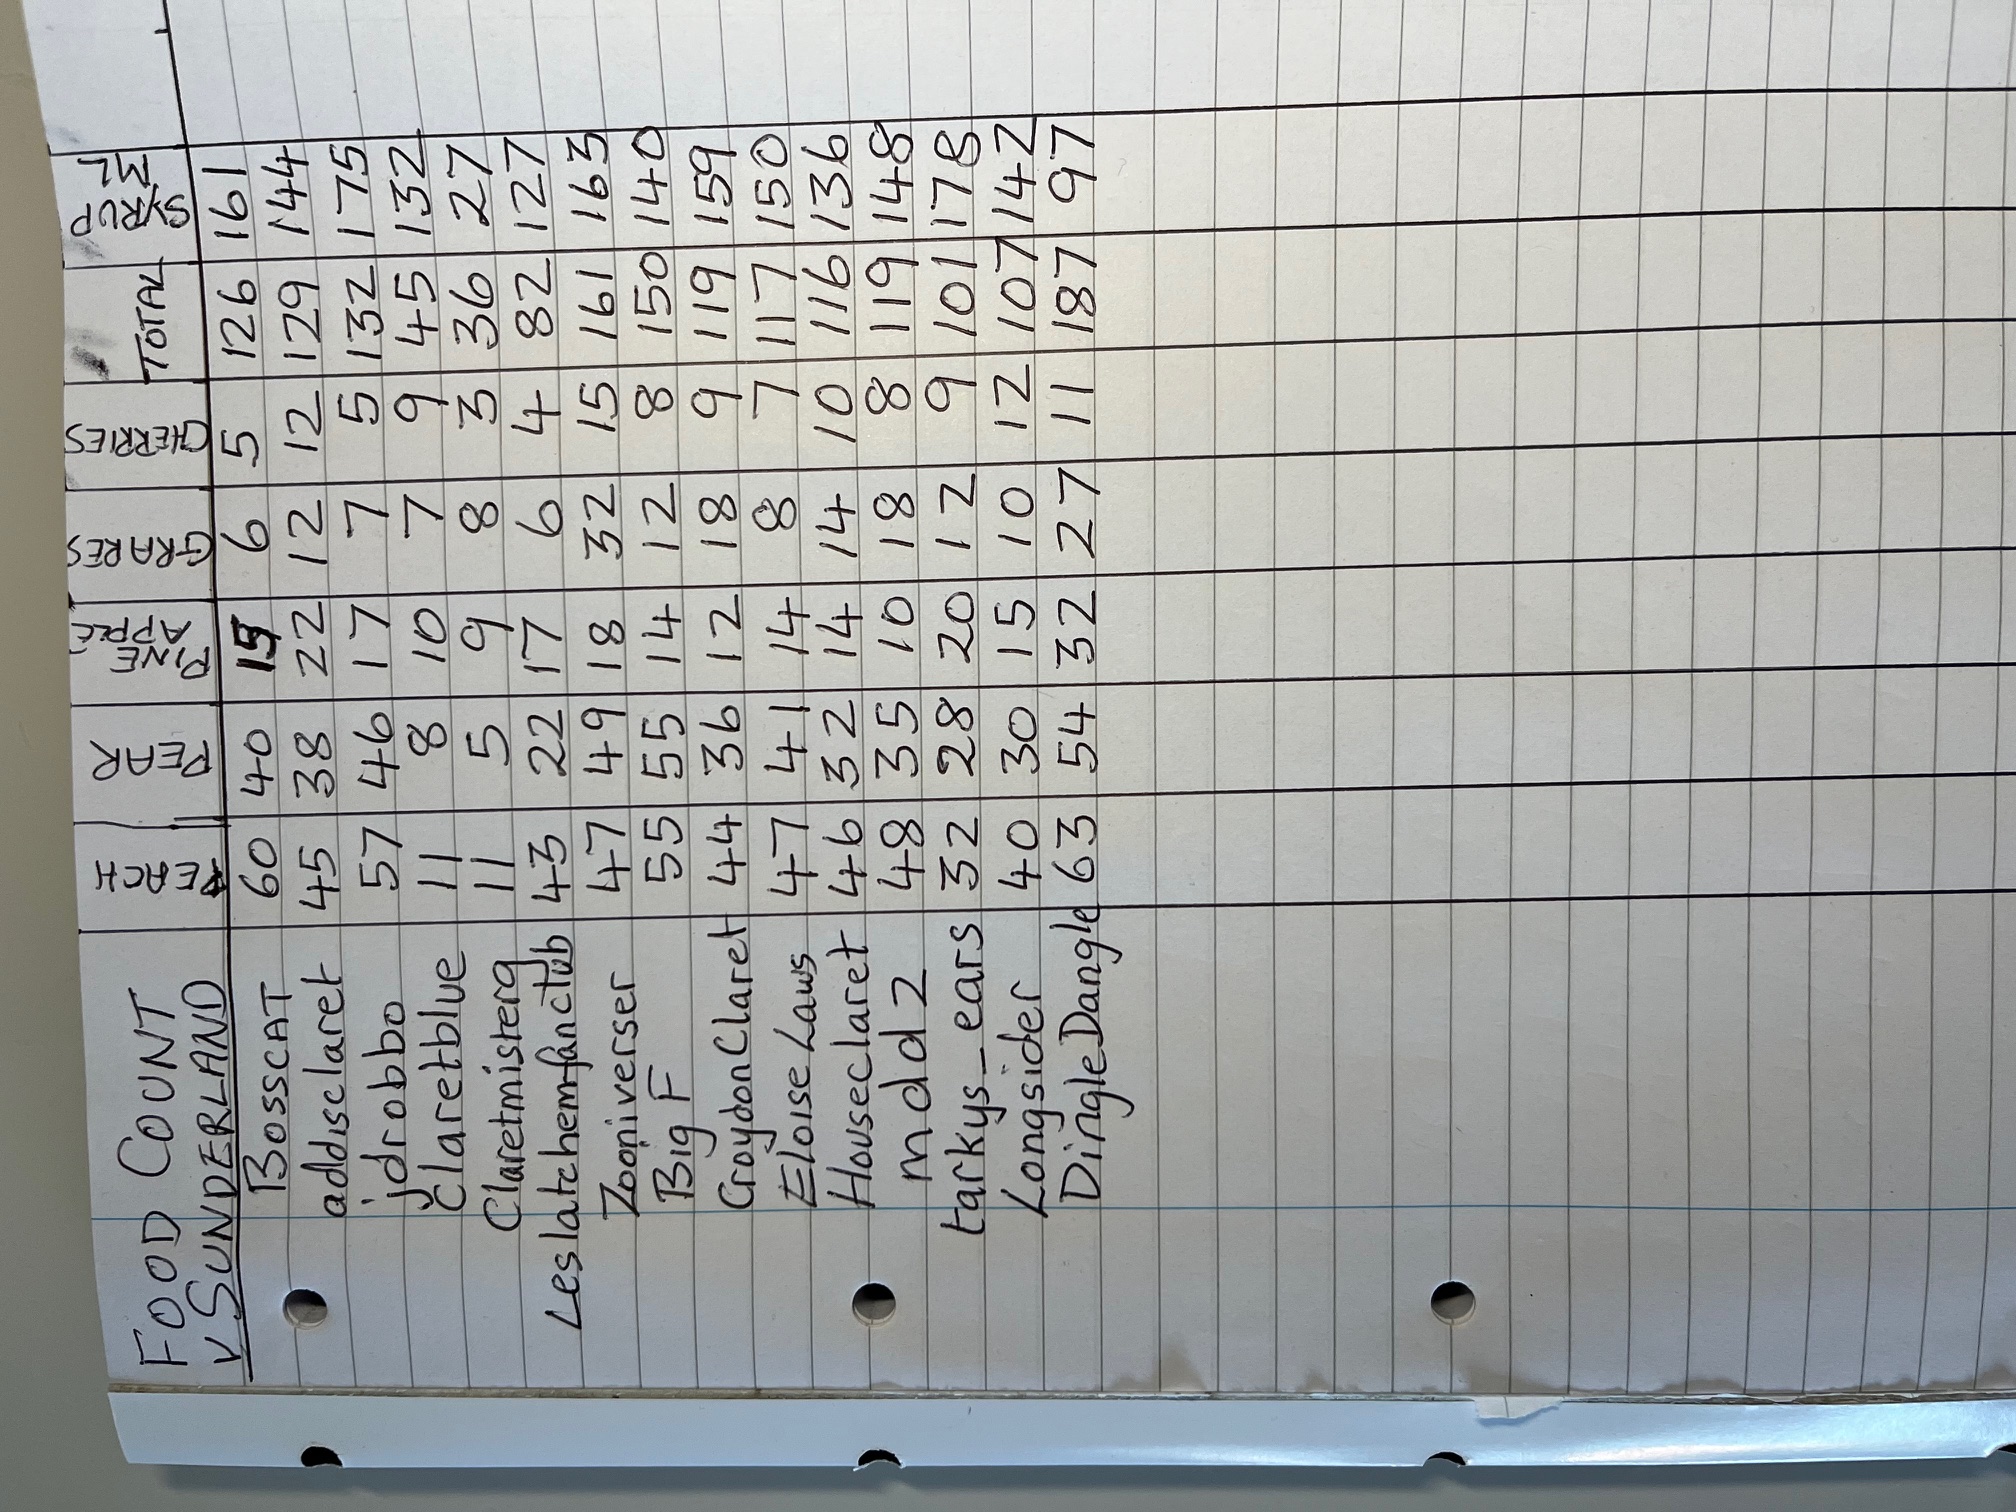 FOOD COUNT PEACH PEAR PINE APPLE GRAPES CHERRIES TOTAL SYRUP ML
v SUNDERLAND
BOSSCAT 60 40 15 6 5 126 161
addisclaret 45 38 22 12 12 129 144
jdrobbo 57 46 17 7 5 132 175
Claretblue 11 8 10 7 9 45 132
Claretmisterg 11 5 9 8 3 36 27
Leslatchemfanclub 43 22 17 6 4 82 127
Zooniverser 47 49 18 32 15 161 163
Big F 55 55 14 12 8 150 140
CroydonClaret 44 36 12 18 9 119 159
Eloise Laws 47 41 14 8 7 117 150
Houseclaret 46 32 14 14 10 116 136
mdd2 48 35 10 18 8 119 148
tarkys_ears 32 28 20 12 9 101 178
Longsider 40 30 15 10 12 107 142
DingleDangle 63 54 32 27 11 187 97